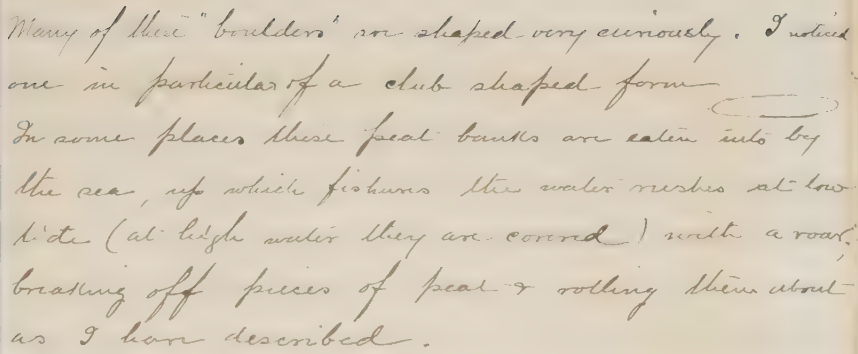 Many of these "boulders" are shaped very curiously. I noticed
one in particular of a club shaped form
In some places these peat banks are eaten into by
the sea, up which fishures the water rushes at low
tide (at high water they are covered) with a roar,
breaking off pieces of peat & rolling them about
as I have described.